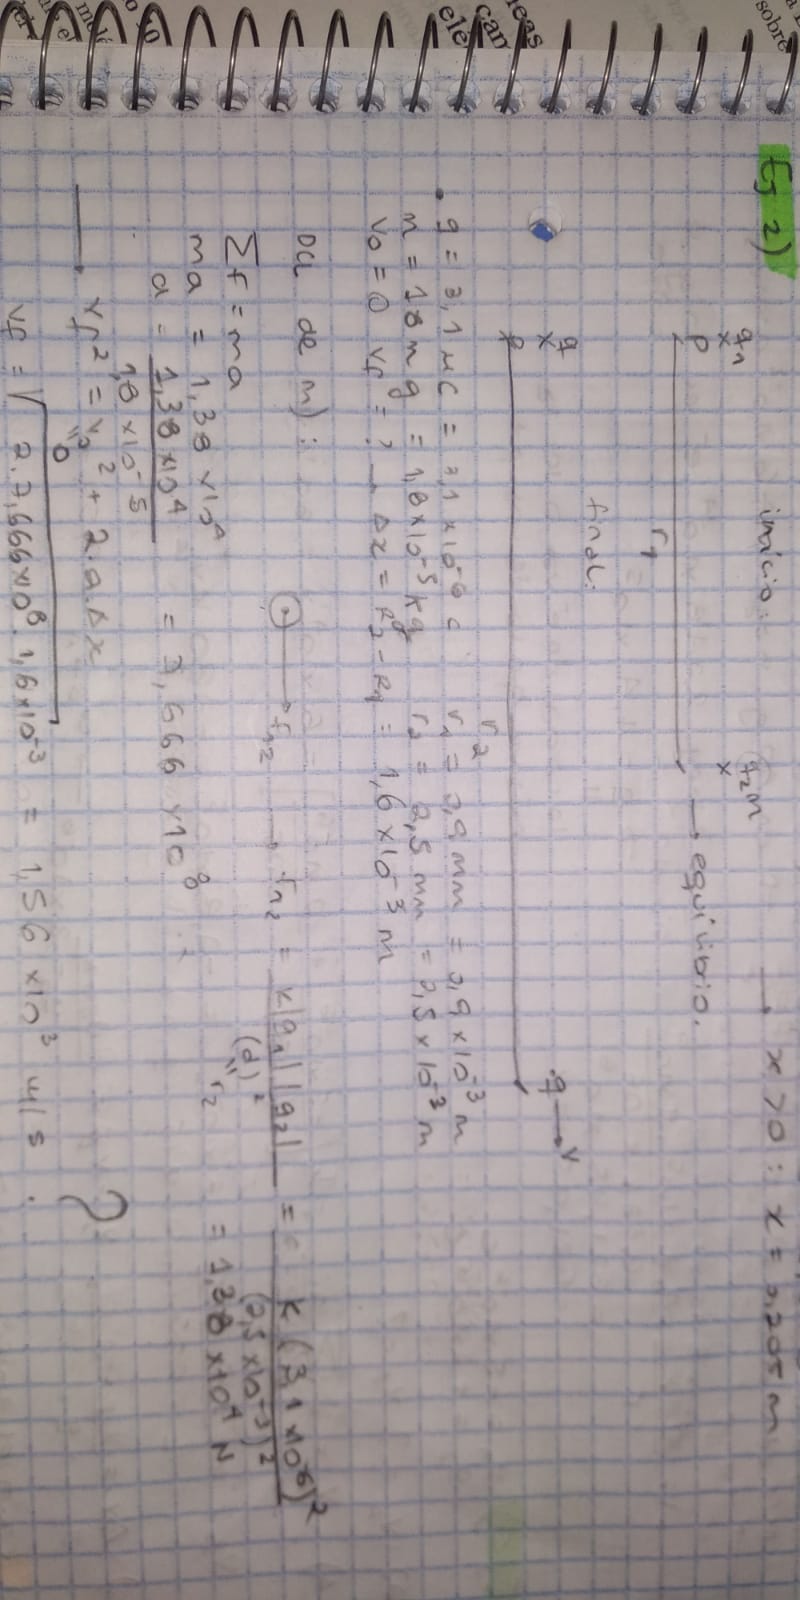 Ej 2)
→ x > 0 : x = 0,205 m
inicio:
q1 q2 m
x x → equilibrio.
P
r1
final:
q q → v
x
P
r2
• q = 3,1 μC = 3,1 x 10^-6 C r1 = 0,9 mm = 0,9 x 10^-3 m
m = 18 mg = 1,8 x 10^-5 kg r2 = 2,5 mm = 2,5 x 10^-3 m
v0 = 0 vf = ? → Δx = R2 - R1 = 1,6 x 10^-3 m
DCL de m):
→ F12 = K|q1||q2| / (d)^2 = K (3,1 x 10^-6)^2 / (2,5 x 10^-3)^2
r2 = 1,38 x 10^4 N
Σf = ma
ma = 1,38 x 10^4
a = 1,38 x 10^4 / 1,8 x 10^-5 = 7,666 x 10^8
→ vf^2 = v0^2 + 2.a.Δx
0
vf = √2.7,666x10^8.1,6x10^-3 = 1,56 x 10^3 m/s. ?